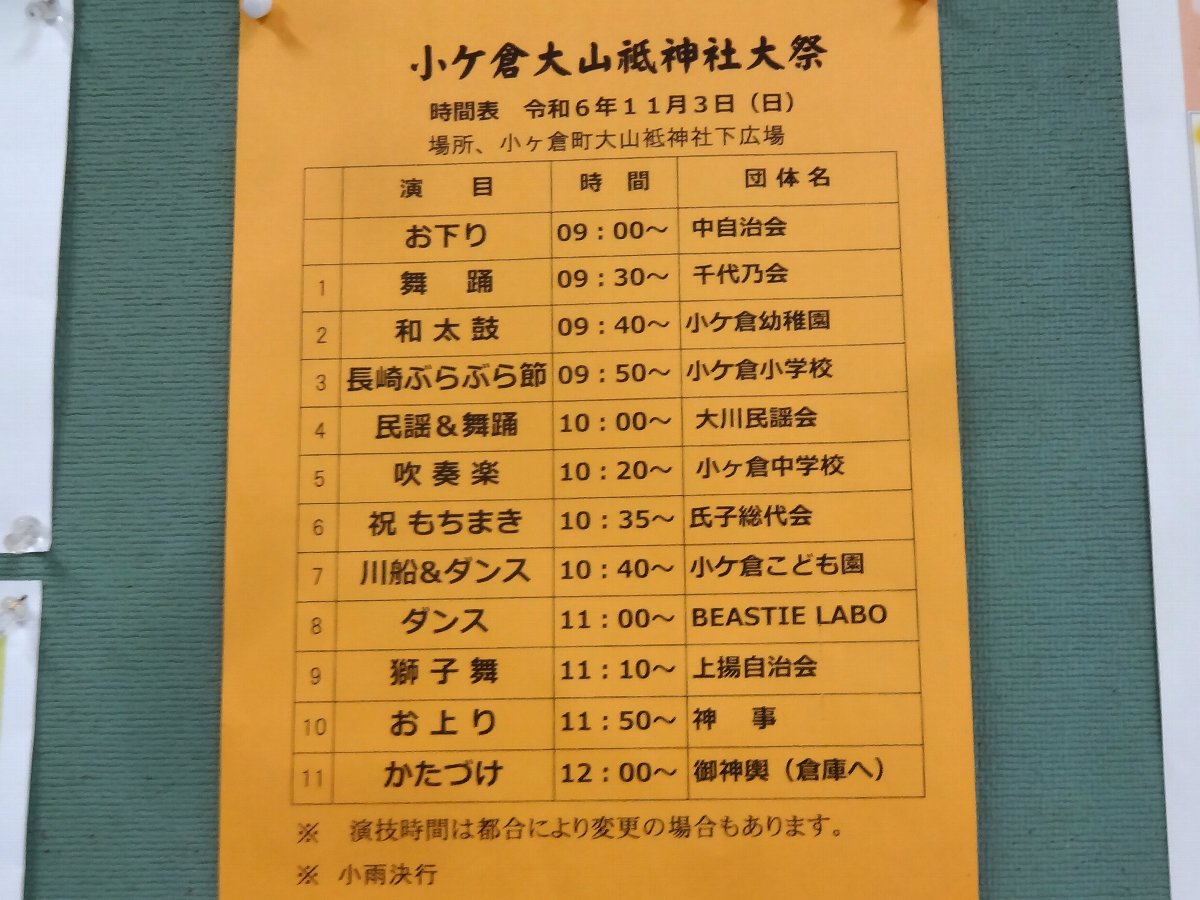 小ケ倉大山祗神社大祭
時間表 令和６年１１月３日（日）
場所、小ヶ倉町大山袛神社下広場
演 目 時 間 団 体 名
お下り 09：00～ 中自治会
1 舞 踊 09：30～ 千代乃会
2 和 太 鼓 09：40～ 小ケ倉幼稚園
3 長崎ぶらぶら節 09：50～ 小ケ倉小学校
4 民謡＆舞踊 10：00～ 大川民謡会
5 吹 奏 楽 10：20～ 小ヶ倉中学校
6 祝 もちまき 10：35～ 氏子総代会
7 川船&ダンス 10：40～ 小ケ倉こども園
8 ダンス 11：00～ BEASTIE LABO
9 獅 子 舞 11：10～ 上揚自治会
10 お 上 り 11：50～ 神 事
11 かたづけ 12：00～ 御神輿（倉庫へ）
※ 演技時間は都合により変更の場合もあります。
※ 小雨決行